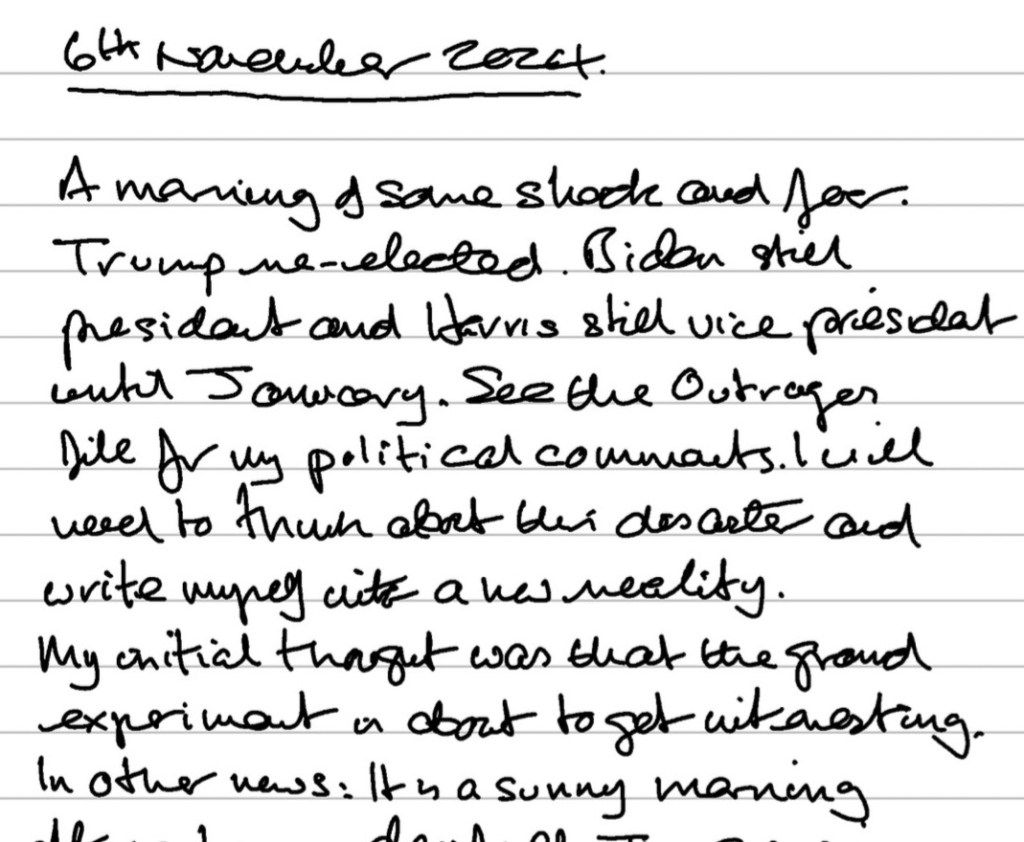 6th November 2024.
A morning of some shock and fear.
Trump re-elected. Biden still
president and Harris still vice president
until January. See the Outrages
file for my political comments. I will
need to think about this disaster and
write myself into a new reality.
My initial thought was that the grand
experiment is about to get interesting.
In other news: It is a sunny morning